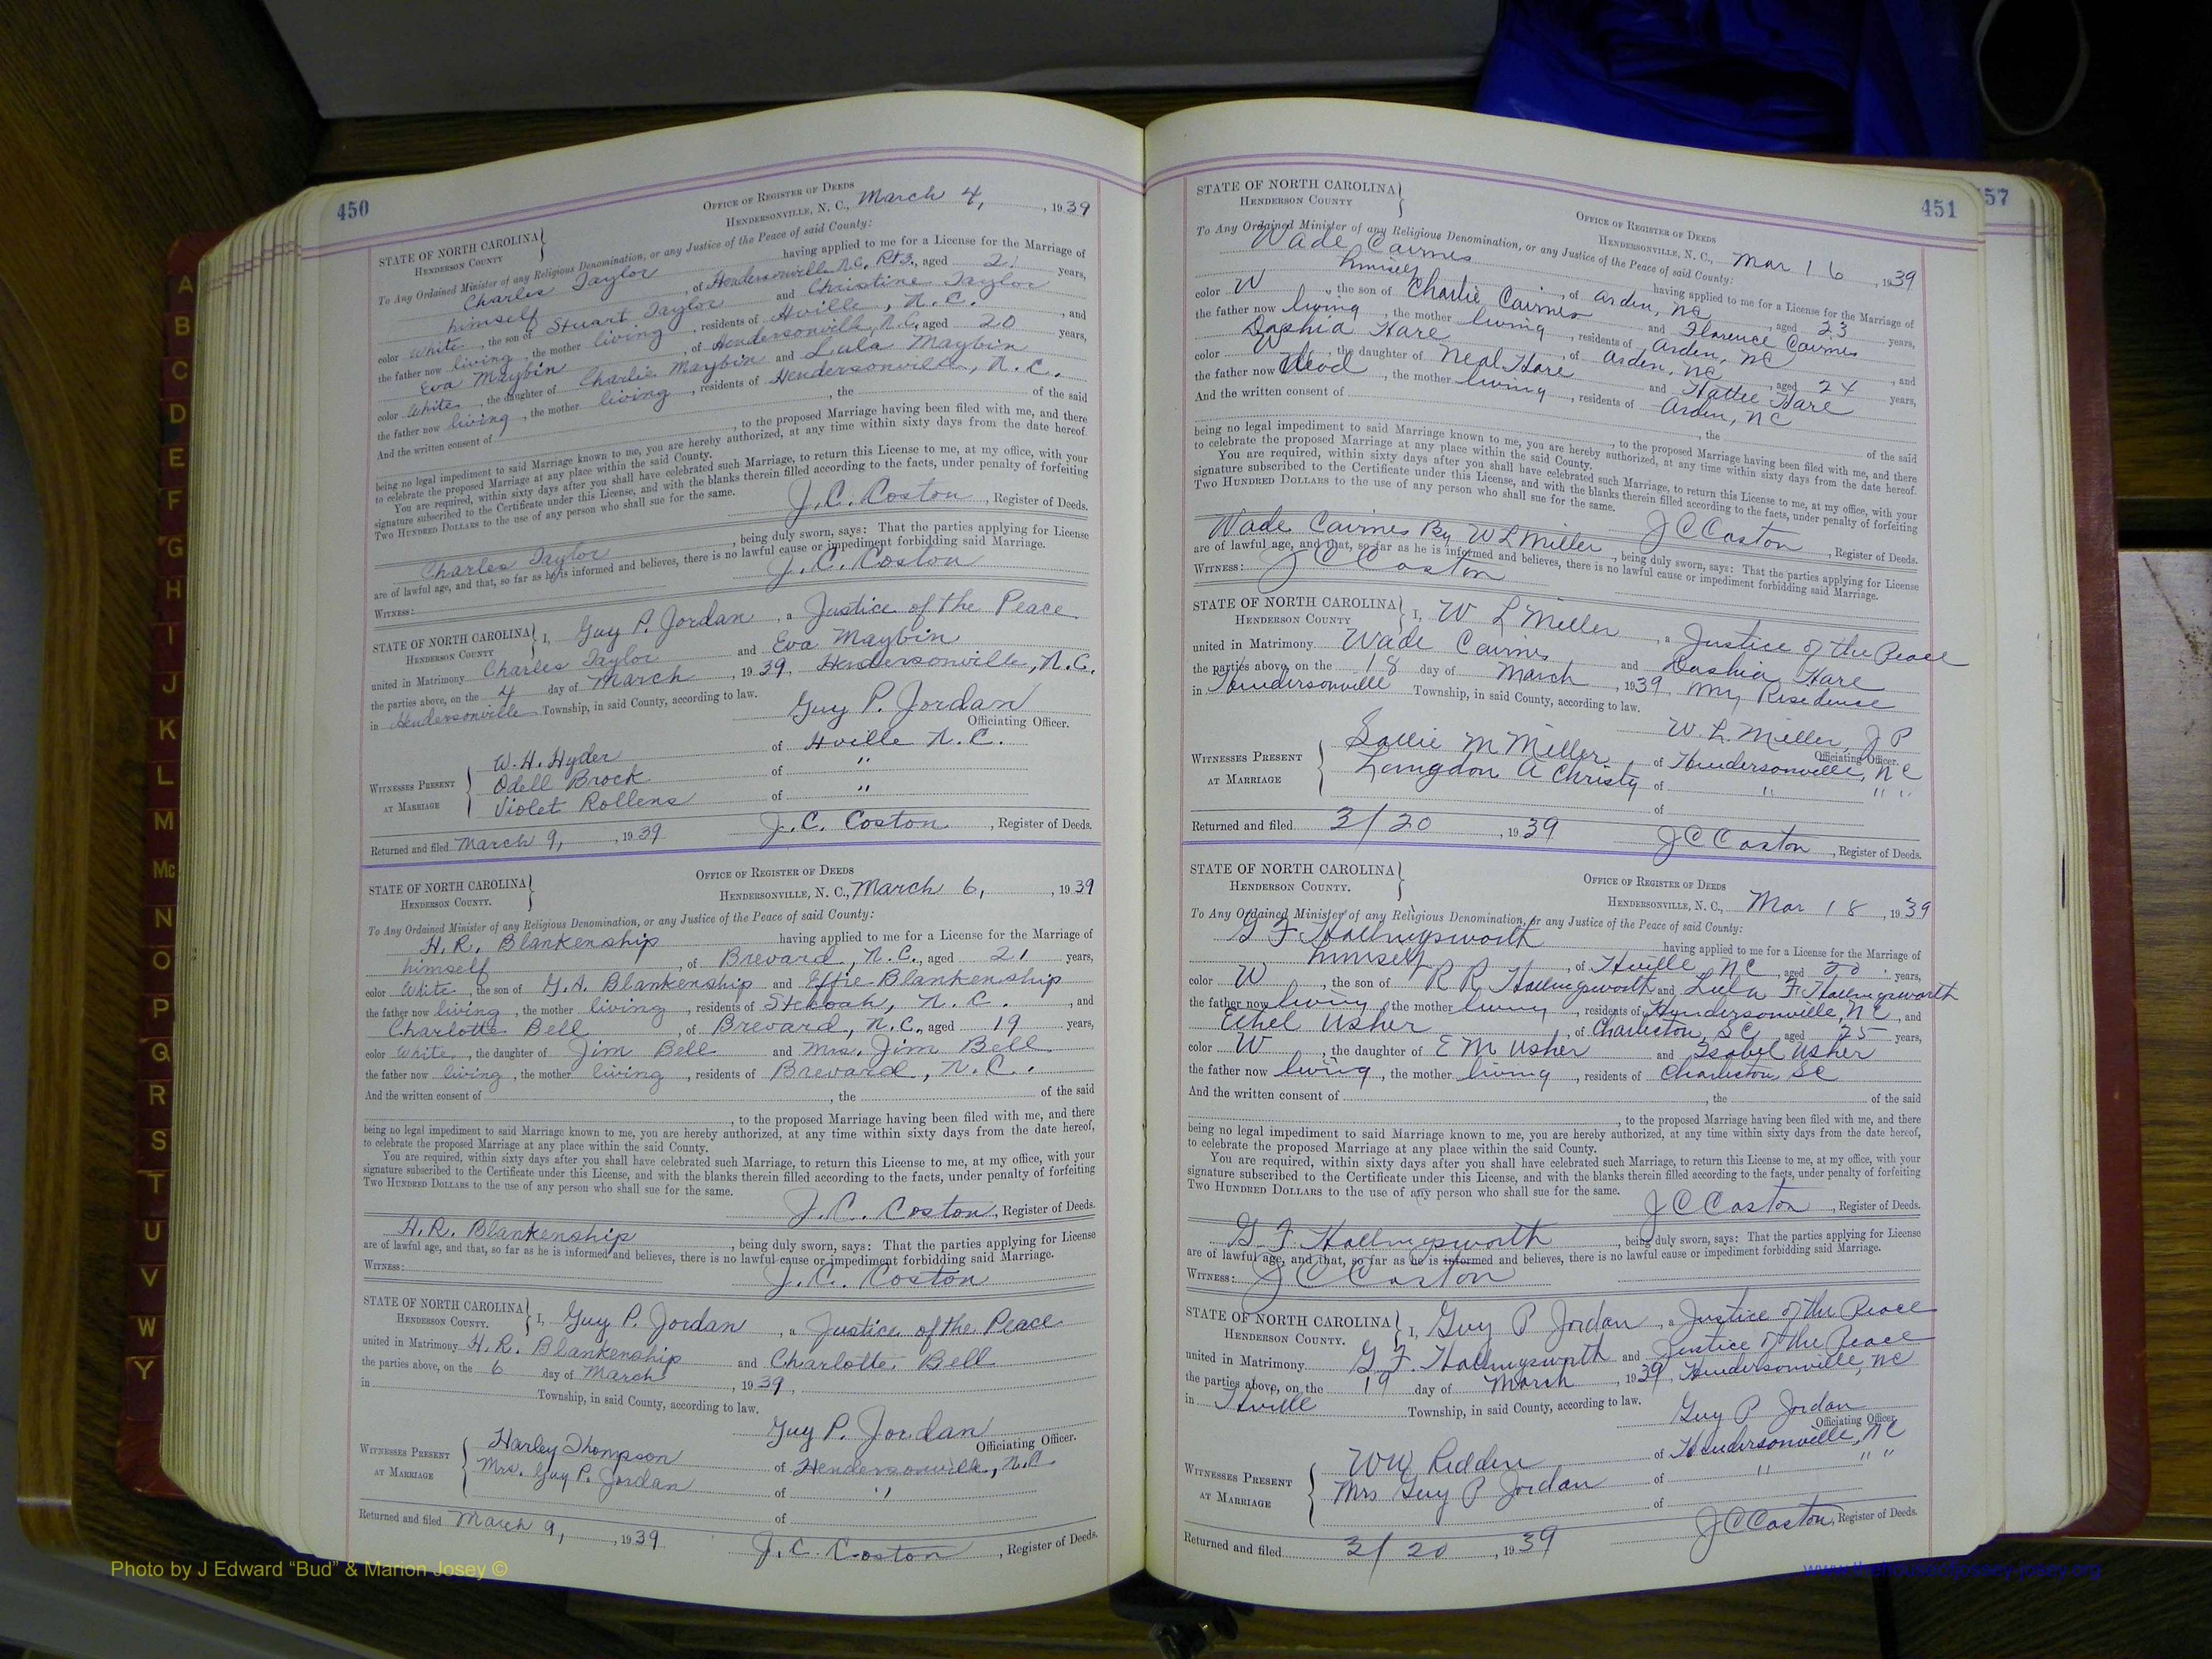 450
OFFICE OF REGISTER OF DEEDS
STATE OF NORTH CAROLINA
HENDERSON COUNTY
HENDERSONVILLE, N. C., March 4, , 1939
To Any Ordained Minister of any Religious Denomination, or any Justice of the Peace of said County:
Charles Taylor having applied to me for a License for the Marriage of
himself , of Hendersonville N.C. Rt3., aged 21 years,
color White , the son of Stuart Taylor and Christine Taylor
the father now living , the mother living , residents of Hville, N.C. , and
Eva Maybin , of Hendersonville, N.C., aged 20 years,
color White , the daughter of Charlie Maybin and Lula Maybin
the father now living , the mother living , residents of Hendersonville, N.C.
And the written consent of , the of the said
, to the proposed Marriage having been filed with me, and there
being no legal impediment to said Marriage known to me, you are hereby authorized, at any time within sixty days from the date hereof,
to celebrate the proposed Marriage at any place within the said County.
You are required, within sixty days after you shall have celebrated such Marriage, to return this License to me, at my office, with your
signature subscribed to the Certificate under this License, and with the blanks therein filled according to the facts, under penalty of forfeiting
TWO HUNDRED DOLLARS to the use of any person who shall sue for the same.
J.C. Coston , Register of Deeds.
Charles Taylor , being duly sworn, says: That the parties applying for License
are of lawful age, and that, so far as he is informed and believes, there is no lawful cause or impediment forbidding said Marriage.
WITNESS: J.C. Coston
STATE OF NORTH CAROLINA
HENDERSON COUNTY
I, Guy P. Jordan , a Justice of the Peace
united in Matrimony Charles Taylor and Eva Maybin
the parties above, on the 4 day of March , 1939, Hendersonville, N.C.
in Hendersonville Township, in said County, according to law.
Guy P. Jordan
Officiating Officer.
WITNESSES PRESENT
AT MARRIAGE
W.H. Hyder of Hville N.C.
Odell Brock of "
Violet Rollens of "
Returned and filed March 9, , 1939 J.C. Coston , Register of Deeds.
OFFICE OF REGISTER OF DEEDS
STATE OF NORTH CAROLINA
HENDERSON COUNTY.
HENDERSONVILLE, N. C., March 6, , 1939
To Any Ordained Minister of any Religious Denomination, or any Justice of the Peace of said County:
H.R. Blankenship having applied to me for a License for the Marriage of
himself , of Brevard, N.C., aged 21 years,
color White , the son of G.A. Blankenship and Effie Blankenship
the father now living , the mother living , residents of Stecoah, N.C. , and
Charlotte Bell , of Brevard, N.C., aged 19 years,
color White , the daughter of Jim Bell and Mrs. Jim Bell
the father now living , the mother living , residents of Brevard, N.C.
And the written consent of , the of the said
, to the proposed Marriage having been filed with me, and there
being no legal impediment to said Marriage known to me, you are hereby authorized, at any time within sixty days from the date hereof,
to celebrate the proposed Marriage at any place within the said County.
You are required, within sixty days after you shall have celebrated such Marriage, to return this License to me, at my office, with your
signature subscribed to the Certificate under this License, and with the blanks therein filled according to the facts, under penalty of forfeiting
TWO HUNDRED DOLLARS to the use of any person who shall sue for the same.
J.C. Coston, Register of Deeds.
H.R. Blankenship , being duly sworn, says: That the parties applying for License
are of lawful age, and that, so far as he is informed and believes, there is no lawful cause or impediment forbidding said Marriage.
WITNESS: J.C. Coston
STATE OF NORTH CAROLINA
HENDERSON COUNTY.
I, Guy P. Jordan , a Justice of the Peace
united in Matrimony H.R. Blankenship and Charlotte Bell
the parties above, on the 6 day of March , 1939,
in Township, in said County, according to law.
Guy P. Jordan
Officiating Officer.
WITNESSES PRESENT
AT MARRIAGE
Harley Thompson of Hendersonville, N.C.
Mrs. Guy P. Jordan of "
of
Returned and filed March 9, , 1939 J.C. Coston , Register of Deeds.
451
57
STATE OF NORTH CAROLINA
HENDERSON COUNTY
OFFICE OF REGISTER OF DEEDS
HENDERSONVILLE, N. C., Mar 16 1939
To Any Ordained Minister of any Religious Denomination, or any Justice of the Peace of said County:
Wade Cairnes having applied to me for a License for the Marriage of
himself , of Arden, NC , aged 23 years,
color W , the son of Charlie Cairnes and Florence Cairnes
the father now living , the mother living , residents of Arden, NC , and
Dashia Hare , of Arden, NC , aged 24 years,
color W , the daughter of Neal Hare and Hattie Hare
the father now dead , the mother living , residents of Arden, NC
And the written consent of , the of the said
, to the proposed Marriage having been filed with me, and there
being no legal impediment to said Marriage known to me, you are hereby authorized, at any time within sixty days from the date hereof,
to celebrate the proposed Marriage at any place within the said County.
You are required, within sixty days after you shall have celebrated such Marriage, to return this License to me, at my office, with your
signature subscribed to the Certificate under this License, and with the blanks therein filled according to the facts, under penalty of forfeiting
TWO HUNDRED DOLLARS to the use of any person who shall sue for the same.
J C Coston , Register of Deeds.
Wade Cairnes By W L Miller , being duly sworn, says: That the parties applying for License
are of lawful age, and that, so far as he is informed and believes, there is no lawful cause or impediment forbidding said Marriage.
WITNESS: J C Coston
STATE OF NORTH CAROLINA
HENDERSON COUNTY
I, W L Miller , a Justice of the Peace
united in Matrimony Wade Cairnes and Dashia Hare
the parties above, on the 18 day of March , 1939, My Residence
in Hendersonville Township, in said County, according to law.
W. L. Miller, J P
Officiating Officer.
WITNESSES PRESENT
AT MARRIAGE
Sallie M Miller of Hendersonville, NC
Langdon A Christy of " " "
of
Returned and filed 3/20 , 1939 J C Coston , Register of Deeds.
STATE OF NORTH CAROLINA
HENDERSON COUNTY.
OFFICE OF REGISTER OF DEEDS
HENDERSONVILLE, N. C., Mar 18 , 1939
To Any Ordained Minister of any Religious Denomination, or any Justice of the Peace of said County:
G F Hollingsworth having applied to me for a License for the Marriage of
himself , of Hville, NC , aged 30 years,
color W , the son of R R Hollingsworth and Lula F Hollingsworth
the father now living , the mother living , residents of Hendersonville, NC , and
Ethel Usher , of Charleston, SC , aged 25 years,
color W , the daughter of E M Usher and Isabel Usher
the father now living , the mother living , residents of Charleston, SC
And the written consent of , the of the said
, to the proposed Marriage having been filed with me, and there
being no legal impediment to said Marriage known to me, you are hereby authorized, at any time within sixty days from the date hereof,
to celebrate the proposed Marriage at any place within the said County.
You are required, within sixty days after you shall have celebrated such Marriage, to return this License to me, at my office, with your
signature subscribed to the Certificate under this License, and with the blanks therein filled according to the facts, under penalty of forfeiting
TWO HUNDRED DOLLARS to the use of any person who shall sue for the same.
J C Coston , Register of Deeds.
G F Hollingsworth , being duly sworn, says: That the parties applying for License
are of lawful age, and that, so far as he is informed and believes, there is no lawful cause or impediment forbidding said Marriage.
WITNESS: J C Coston
STATE OF NORTH CAROLINA
HENDERSON COUNTY.
I, Guy P Jordan , a Justice of the Peace
united in Matrimony G F. Hollingsworth and Justice of the Peace
the parties above, on the 19 day of March , 1939, Hendersonville, NC
in Hville Township, in said County, according to law.
Guy P Jordan
Officiating Officer
WITNESSES PRESENT
AT MARRIAGE
WW Redden of Hendersonville, NC
Mrs Guy P Jordan of " " "
of
Returned and filed 3/20 , 1939 J C Coston, Register of Deeds.
A
B
C
D
E
F
G
H
I
J
K
L
M
Mc
N
O
P
Q
R
S
T
U
V
W
Y
Photo by J Edward “Bud” & Marion Josey ©
www.thehouseofjossey-josey.org